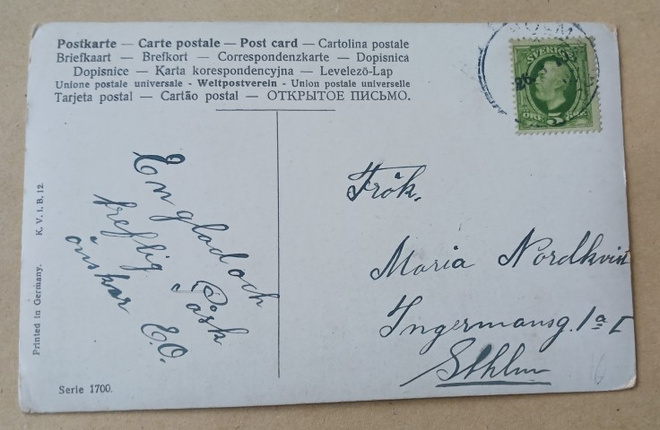 Postkarte — Carte postale — Post card — Cartolina postale
Briefkaart — Brefkort — Correspondenzkarte — Dopisnica
Dopisnice — Karta korespondencyjna — Levelező-Lap
Unione postale universale - Weltpostverein - Union postale universelle
Tarjeta postal — Cartão postal — ОТКРЫТОЕ ПИСЬМО.
SVERIGE
ÖRE 5 ÖRE
En glad och
treflig Påsk
önskar E.O.
Frök.
Maria Nordkvist
Ingermansg. 1a I
Sthlm
Printed in Germany. K. V. i. B. 12.
Serie 1700.